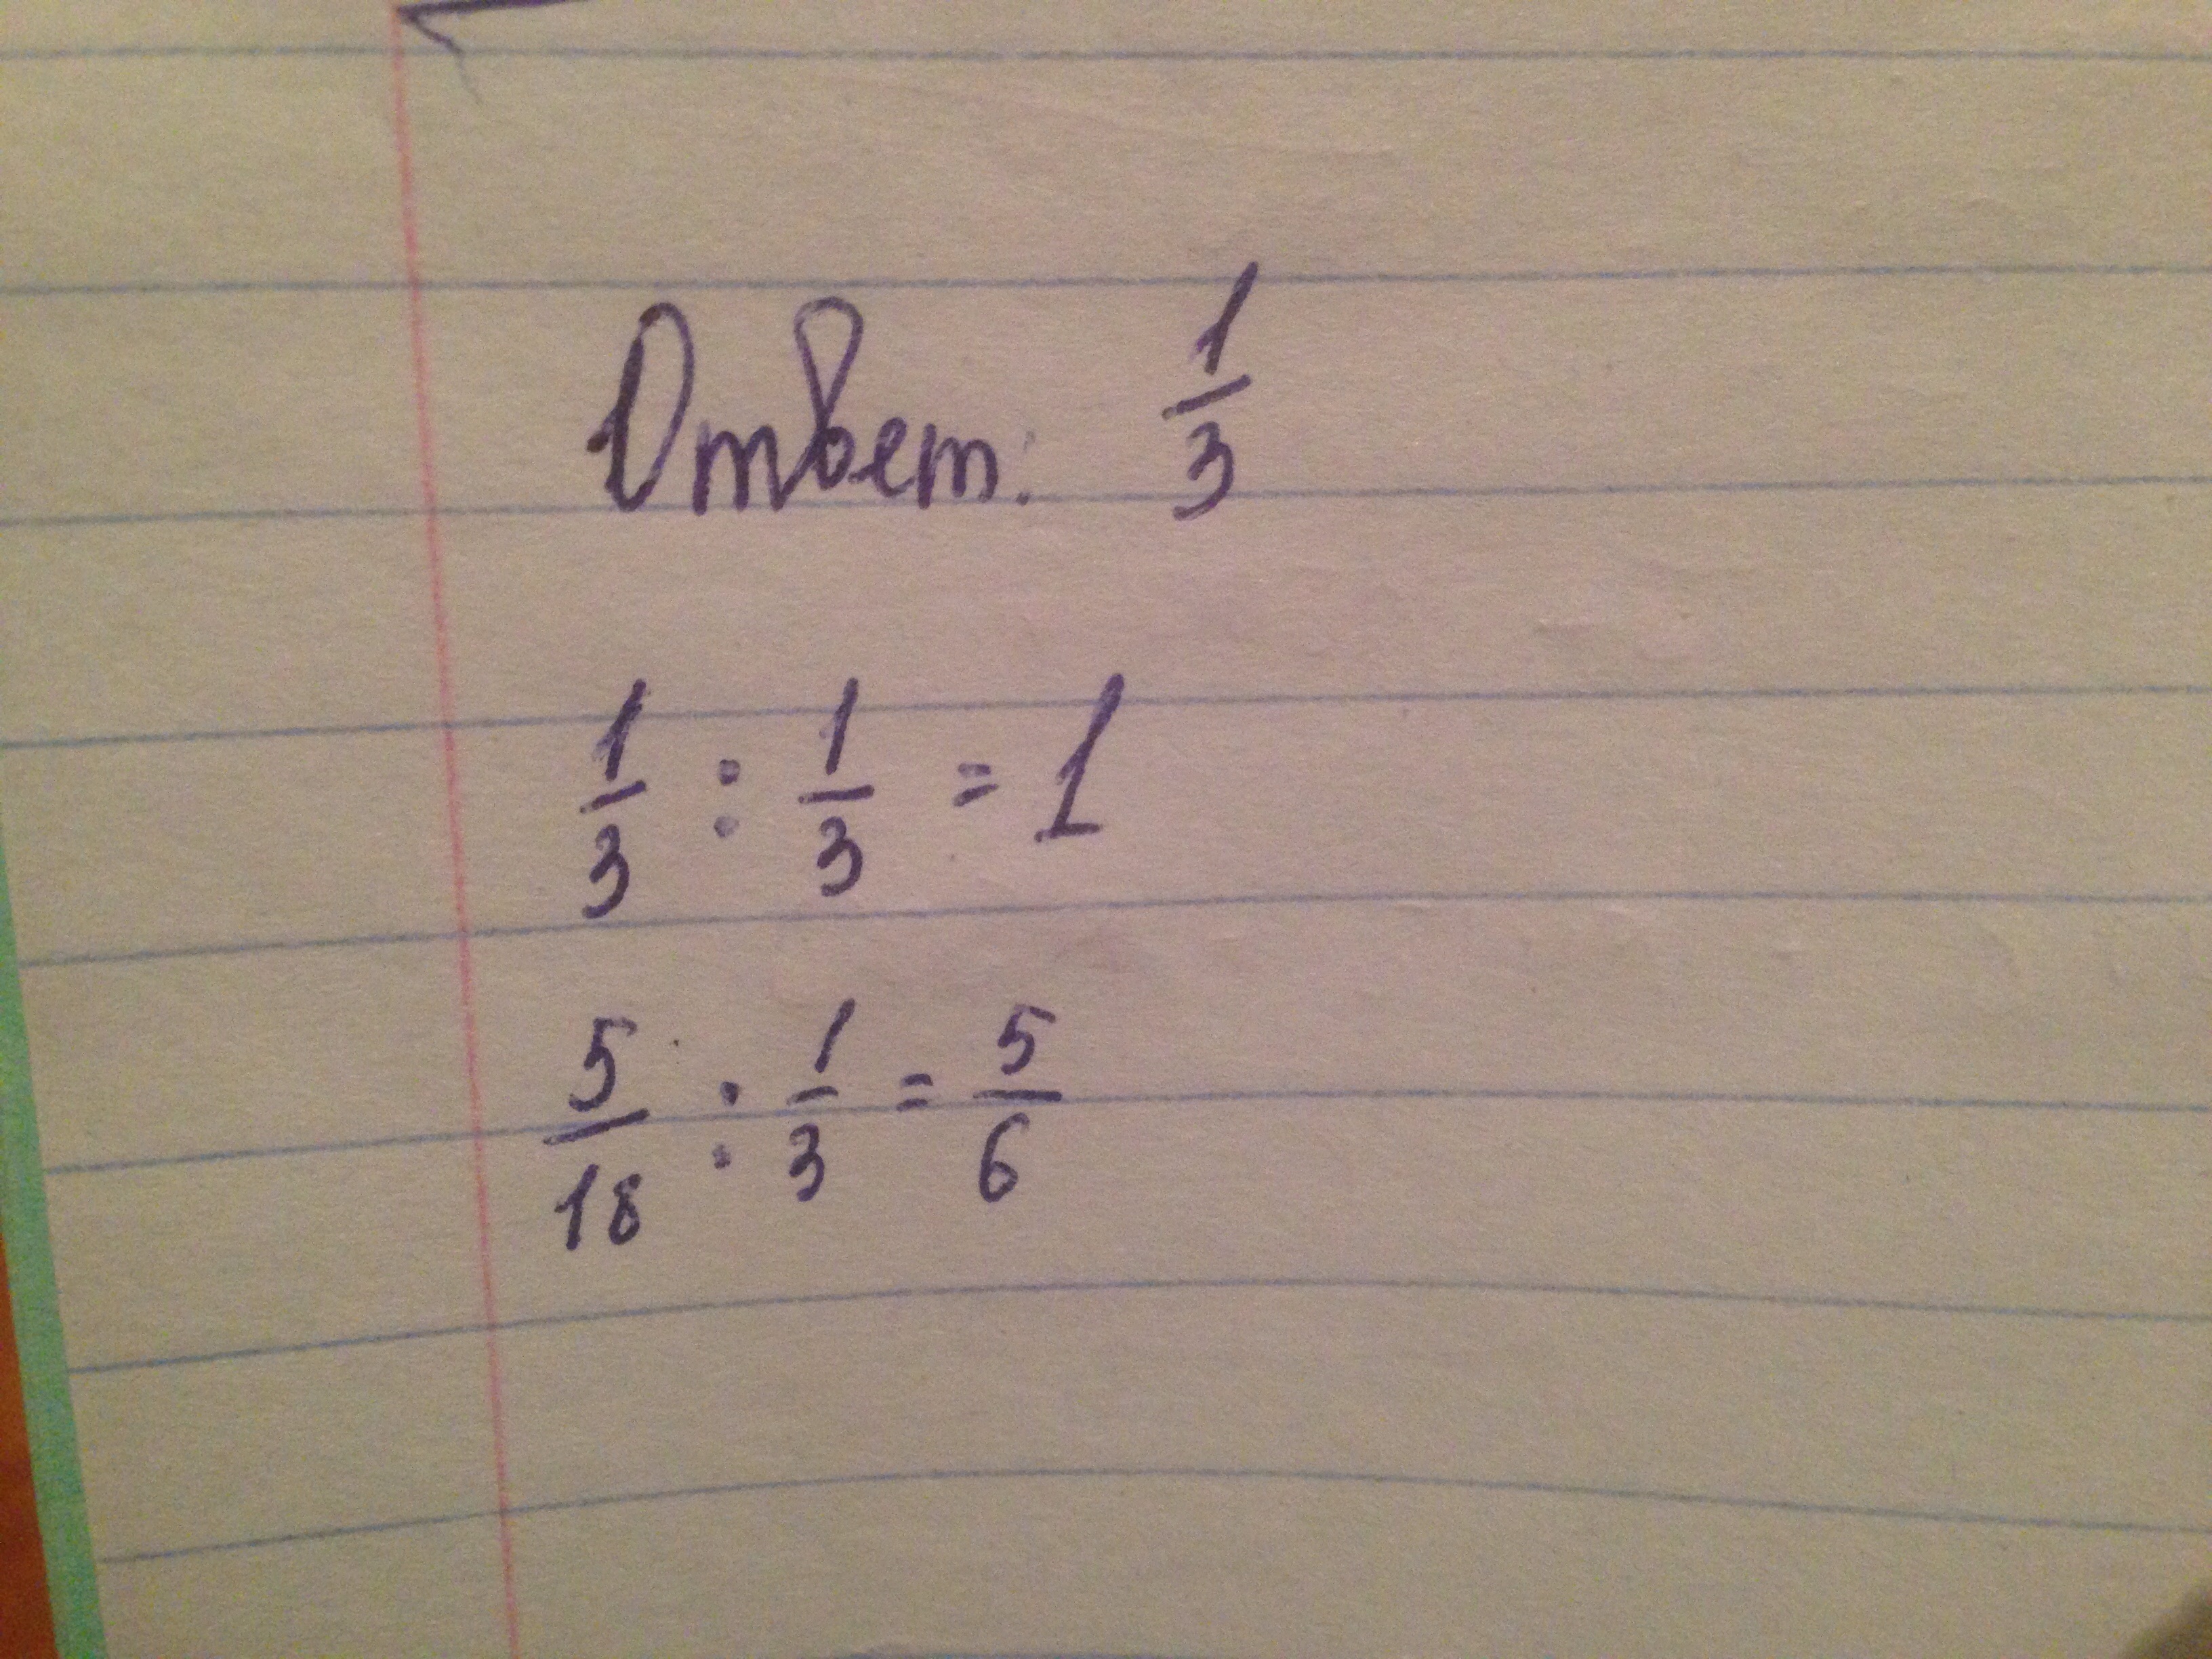 Ответ: 1/3
1/3 : 1/3 = 1
5/18 : 1/3 = 5/6